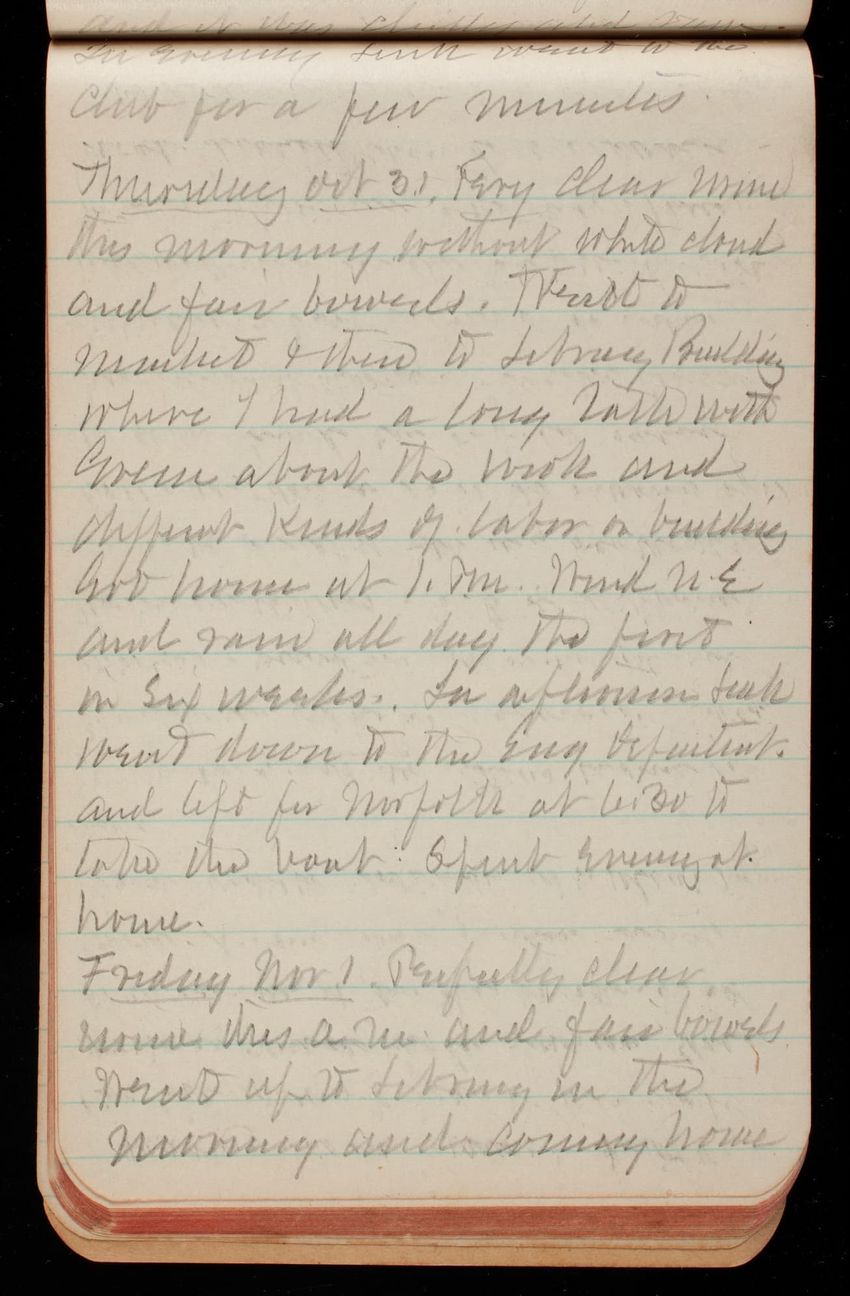 and it was chilly and raw.
In evening went to the
Club for a few minutes.
Thursday Oct 31. Very clear urine
this morning without white cloud
and fair bowels. Went to
market & then to Library Building
where I had a long talk with
Green about the work and
different kinds of labor on building
Got home at 1. P.m. Wind N.E
and rain all day the first
in six weeks. In afternoon
went down to the Eng Department.
and left for Norfolk at 6:30 to
take the boat. Spent Evening at
home.
Friday Nov 1. Perfectly clear
urine this a.m. and fair bowels
Went up to Library in the
morning and coming home